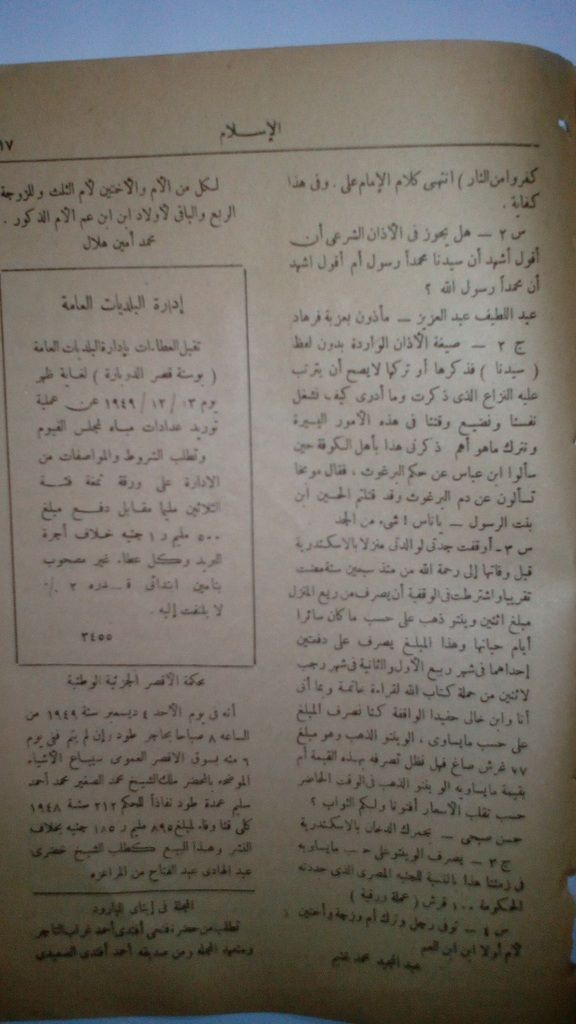 الإسلام
١٧
كفروا من النار ) انتهى كلام الإمام على . وفى هذا
كفاية .
س ٢ — هل يجوز فى الأذان الشرعى أن
أقول أشهد أن سيدنا محمداً رسول أم أقول اشهد
أن محمداً رسول الله ؟
عبد اللطيف عبد العزيز — مأذون بعزبة فرهاد
ج ٢ — صيغة الأذان الواردة بدون لفظ
( سيدنا ) فذكرها أو تركها لا يصح أن يترتب
عليه النزاع الذى ذكرت وما أدرى كيف نشغل
نفسنا ونضيع وقتنا فى هذه الأمور اليسيرة
ونترك ماهو أهم ذكرنى هذا بأهل الكوفة حين
سألوا ابن عباس عن حكم البرغوث ، فقال موبخا
تسألون عن دم البرغوث وقد قتلتم الحسين ابن
بنت الرسول — ياناس ! شىء من الجد
س ٣ - أوقفت جدتى لوالدتى منزلا بالاسكندرية
قبل وفاتها إلى رحمة الله من منذ سبعين سنة مضت
تقريبا واشترطت فى الوقفية أن يصرف من ريع المنزل
مبلغ اثنين وينتو ذهب على حسب ما كان سائرا
أيام حياتها وهذا المبلغ يصرف على دفعتين
إحداهما فى شهر ربيع الأول والثانية فى شهر رجب
لاثنين من حملة كتاب الله لقراءة خاتمة وبما أنى
أنا وابن خالى حفيدا الواقفة كنا نصرف المبلغ
على حسب مايساوى ، الوينتو الذهب وهو مبلغ
٧٧ غرش صاغ فهل نظل نصرفه بهذه القيمة أم
بقيمة مايساويه الوينتو الذهب فى الوقت الحاضر
حسب تقلب الأسعار أفتونا ولكم الثواب ؟
حسن صبحى — بجمرك الدخان بالاسكندرية
ج ٣ — يصرف الوينتو على حسب مايساويه
فى زمننا هذا بالنسبة للجنيه المصرى الذى حددته
الحكومة ١٠٠ قرش ( عملة ورقية )
س ٤ — توفى رجل وترك أم وزوجة وأختين
لأم أولا ابن ابن العم
عبد المجيد محمد غنيم
لكل من الأم والأختين لأم الثلث وللزوجة
الربع والباقى لأولاد ابن ابن عم الأم المذكور .
محمد أمين هلال
إدارة البلديات العامة
تقبل العطاءات بإدارة البلديات العامة
( بوستة قصر الدوبارة ) لغاية ظهر
يوم ١٣ / ١٢ / ١٩٤٩ عن عملية
توريد عدادات مياه لمجلس الفيوم
وتطلب الشروط والمواصفات من
الادارة على ورقة تمغة فئة
الثلاثين مليما مقابل دفع مبلغ
٥٠٠ مليم و ١ جنيه خلاف أجرة
البريد وكل عطاء غير مصحوب
بتأمين ابتدائى قدره ٢ ٪
لا يلتفت إليه .
٣٤٥٥
محكمة الأقصر الجزئية الوطنية
أنه فى يوم الأحد ٤ ديسمبر سنة ١٩٤٩ من
الساعة ٨ صباحا بحاجر طود وإن لم يتم ففى يوم
٦ منه بسوق الاقصر العمومى سيباع الأشياء
الموضحه بالمحضر ملك الشيخ محمد الصغير محمد أحمد
سليم عمدة طود نفاذاً للحكم ٢١٢ سنة ١٩٤٨
كلى قنا وفاء لمبلغ ٨٩٥ مليم و ١٨٥ جنيه بخلاف
النشر وهذا البيع كطلب الشيخ خضرى
عبد الهادى عبد الفتاح من المراعزه
المجلة فى إيتاى البارود
تطلب من حضرة فهمى أفندى أحمد غراب التاجر
ومتعهد المجلة ومن صديقه أحمد أفندى الصعيدى